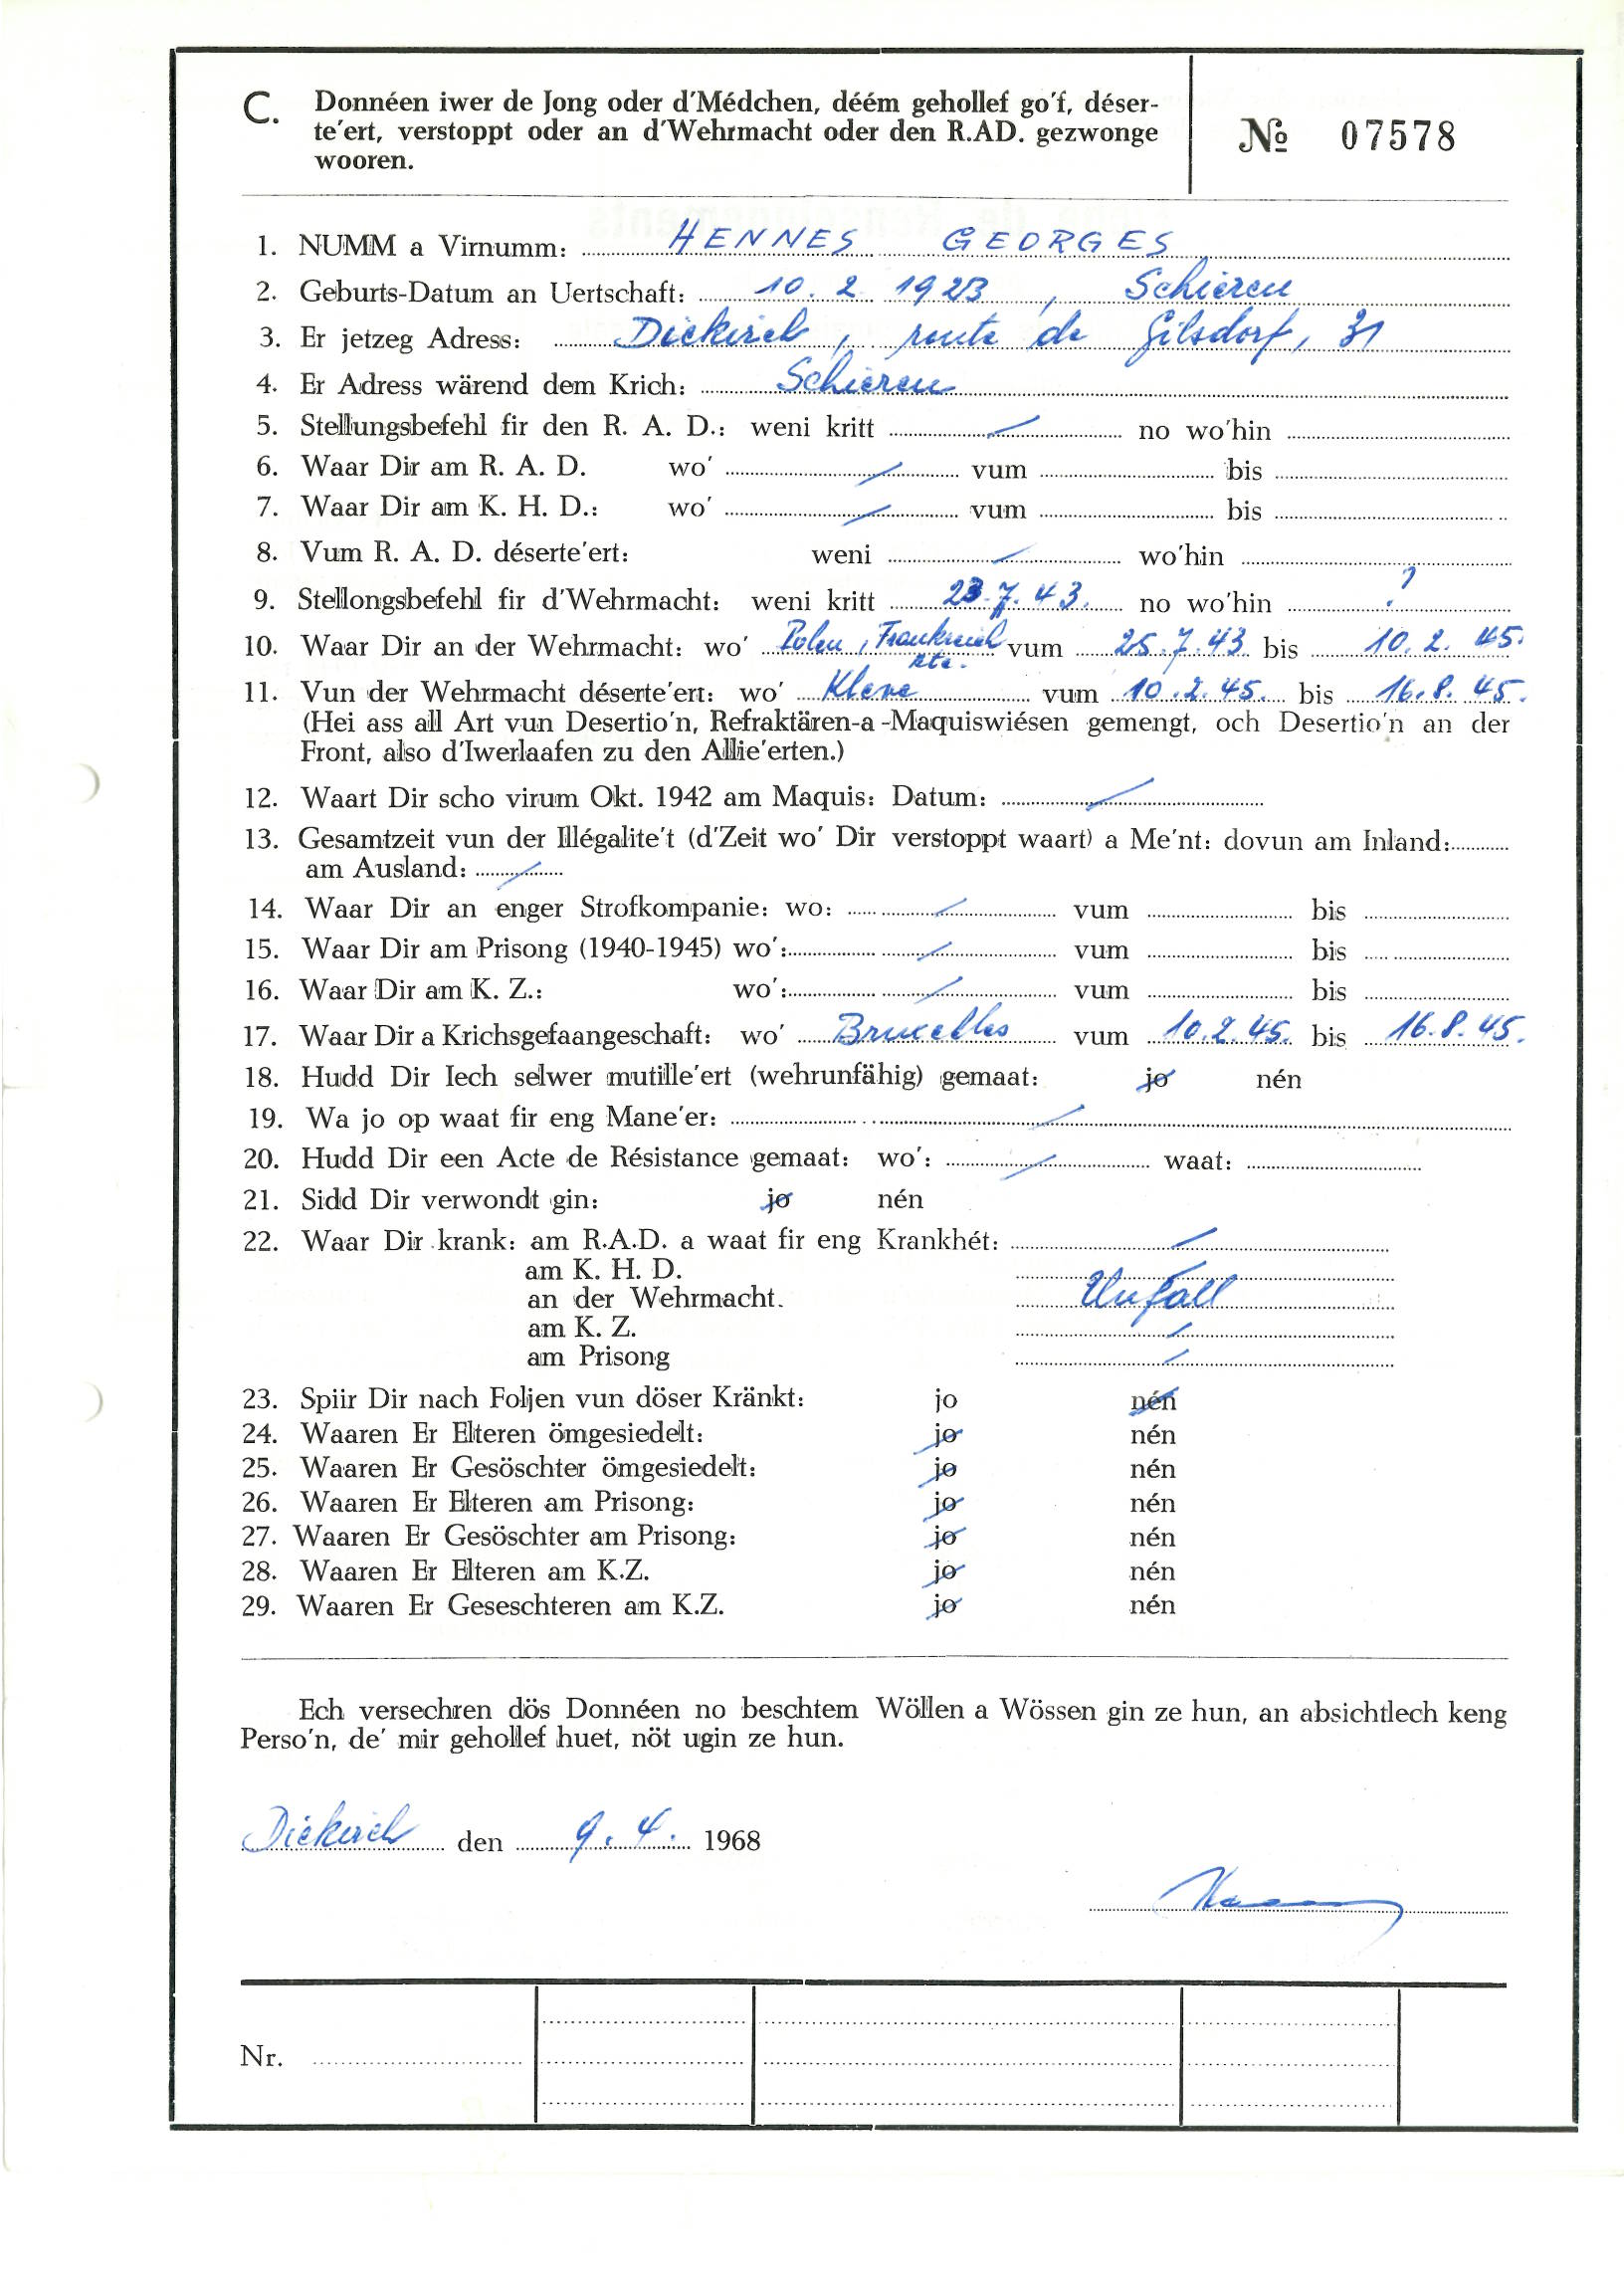 C. Donnéen iwer de Jong oder d'Médchen, déém gehollef go'f, déser-
te'ert, verstoppt oder an d'Wehrmacht oder den R.AD. gezwonge
wooren.
№ 07578
1. NUMM a Virnumm: HENNES GEORGES
2. Geburts-Datum an Uertschaft: 10. 2. 1923, Schieren
3. Er jetzeg Adress: Diekirch, route de Gilsdorf, 31
4. Er Adress wärend dem Krich: Schieren
5. Stellungsbefehl fir den R. A. D.: weni kritt / no wo'hin
6. Waar Dir am R. A. D. wo' / vum bis
7. Waar Dir am K. H. D.: wo' / vum bis
8. Vum R. A. D. déserte'ert: weni / wo'hin
9. Stellongsbefehl fir d'Wehrmacht: weni kritt 23.7.43. no wo'hin ?
10. Waar Dir an der Wehrmacht: wo' Polen, Frankreich etc. vum 25.7.43 bis 10.2.45.
11. Vun der Wehrmacht déserte'ert: wo' Kleve vum 10.2.45. bis 16.8.45.
(Hei ass all Art vun Desertio'n, Refraktären-a-Maquiswiésen gemengt, och Desertio'n an der
Front, also d'Iwerlaafen zu den Allie'erten.)
12. Waart Dir scho virum Okt. 1942 am Maquis: Datum: /
13. Gesamtzeit vun der Illégalite't (d'Zeit wo' Dir verstoppt waart) a Me'nt: dovun am Inland:
am Ausland: /
14. Waar Dir an enger Strofkompanie: wo: / vum bis
15. Waar Dir am Prisong (1940-1945) wo': / vum bis
16. Waar Dir am K. Z.: wo': / vum bis
17. Waar Dir a Krichsgefaangeschaft: wo' Bruxelles vum 10.2.45. bis 16.8.45.
18. Hudd Dir Iech selwer mutille'ert (wehrunfähig) gemaat: jo nén
19. Wa jo op waat fir eng Mane'er: /
20. Hudd Dir een Acte de Résistance gemaat: wo': / waat:
21. Sidd Dir verwondt gin: jo nén
22. Waar Dir krank: am R.A.D. a waat fir eng Krankhét: /
am K. H. D.
an der Wehrmacht. Unfall
am K. Z. /
am Prisong /
23. Spiir Dir nach Foljen vun döser Kränkt: jo nén
24. Waaren Er Elteren ömgesiedelt: jo nén
25. Waaren Er Gesöschter ömgesiedelt: jo nén
26. Waaren Er Elteren am Prisong: jo nén
27. Waaren Er Gesöschter am Prisong: jo nén
28. Waaren Er Elteren am K.Z. jo nén
29. Waaren Er Geseschteren am K.Z. jo nén
Ech versechren dös Donnéen no beschtem Wöllen a Wössen gin ze hun, an absichtlech keng
Perso'n, de' mir gehollef huet, nöt ugin ze hun.
Diekirch den 9. 4. 1968
Nr.